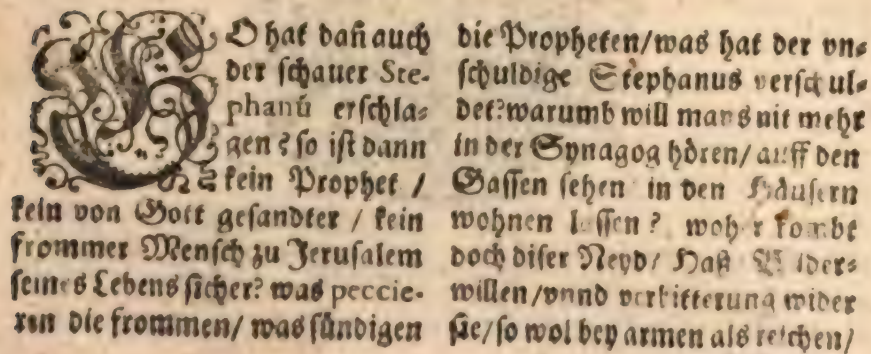 SO hat dañ auch
der schauer Ste-
phanū erschla-
gen? so ist dann
kein Prophet /
kein von Gott gesandter / kein
frommer Mensch zu Jerusalem
seines Lebens sicher? was peccie-
ren die frommen/ was sündigen
die Propheten/was hat der vn-
schuldige Stephanus verschul-
det?warumb will mans nit mehr
in der Synagog hören/ auff den
Gassen sehen in den Häusern
wohnen lassen? woher kombt
doch diser Neyd/ Haß Widers-
willen/vnnd verbitterung wider
sie/so wol bey armen als reichen/